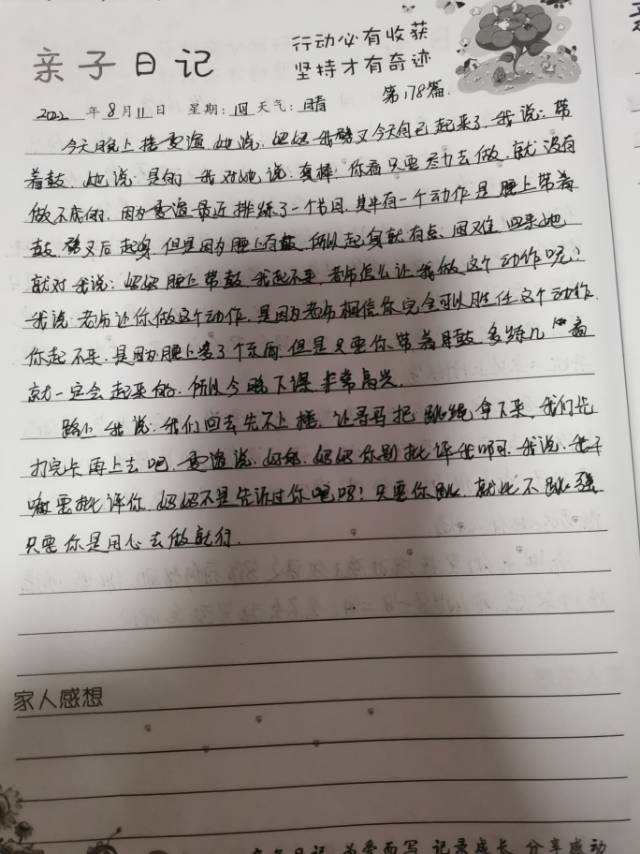 亲子日记
行动必有收获
坚持才有奇迹
第178篇.
2022年8月11日 星期:四 天气:晴
今天晚上接 她说:妈妈我 又今天自己起来了,我说:带
着鼓,她说:是的,我对她说:真棒!你看只要尽力去做,就没有
做不成的,因为 最近排练了一个节目,其中有一个动作是腰上带着
鼓, 叉后起身,但是因为腰上有鼓,所以起身就有点困难,回来她
就对我说:妈妈腰上带鼓,我起不来,老师怎么让我做这个动作呢?
我说:老师让你做这个动作,是因为老师相信你完全可以胜任这个动作.
你起不来,是因为腰上多了个东西,但是只要你带着鼓,多练几遍
就一定会起来的.所以今晚下课非常高兴.
路上我说:我们回去先不上楼,让哥哥把跳绳拿下来,我们先
打完卡再上去吧, 说:好的,妈妈你别批评我啊,我说:我干
嘛要批评你,妈妈不是告诉过你吗?只要你跳,就比不跳强
只要你是用心去做就行.
家人感想
亲子日记 为爱而写 记录成长 分享感动